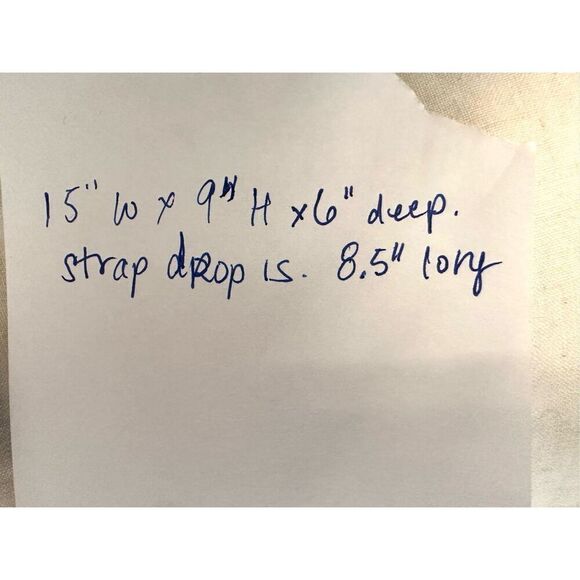 15" W x 9" H x 6" deep.
strap drop is. 8.5" long